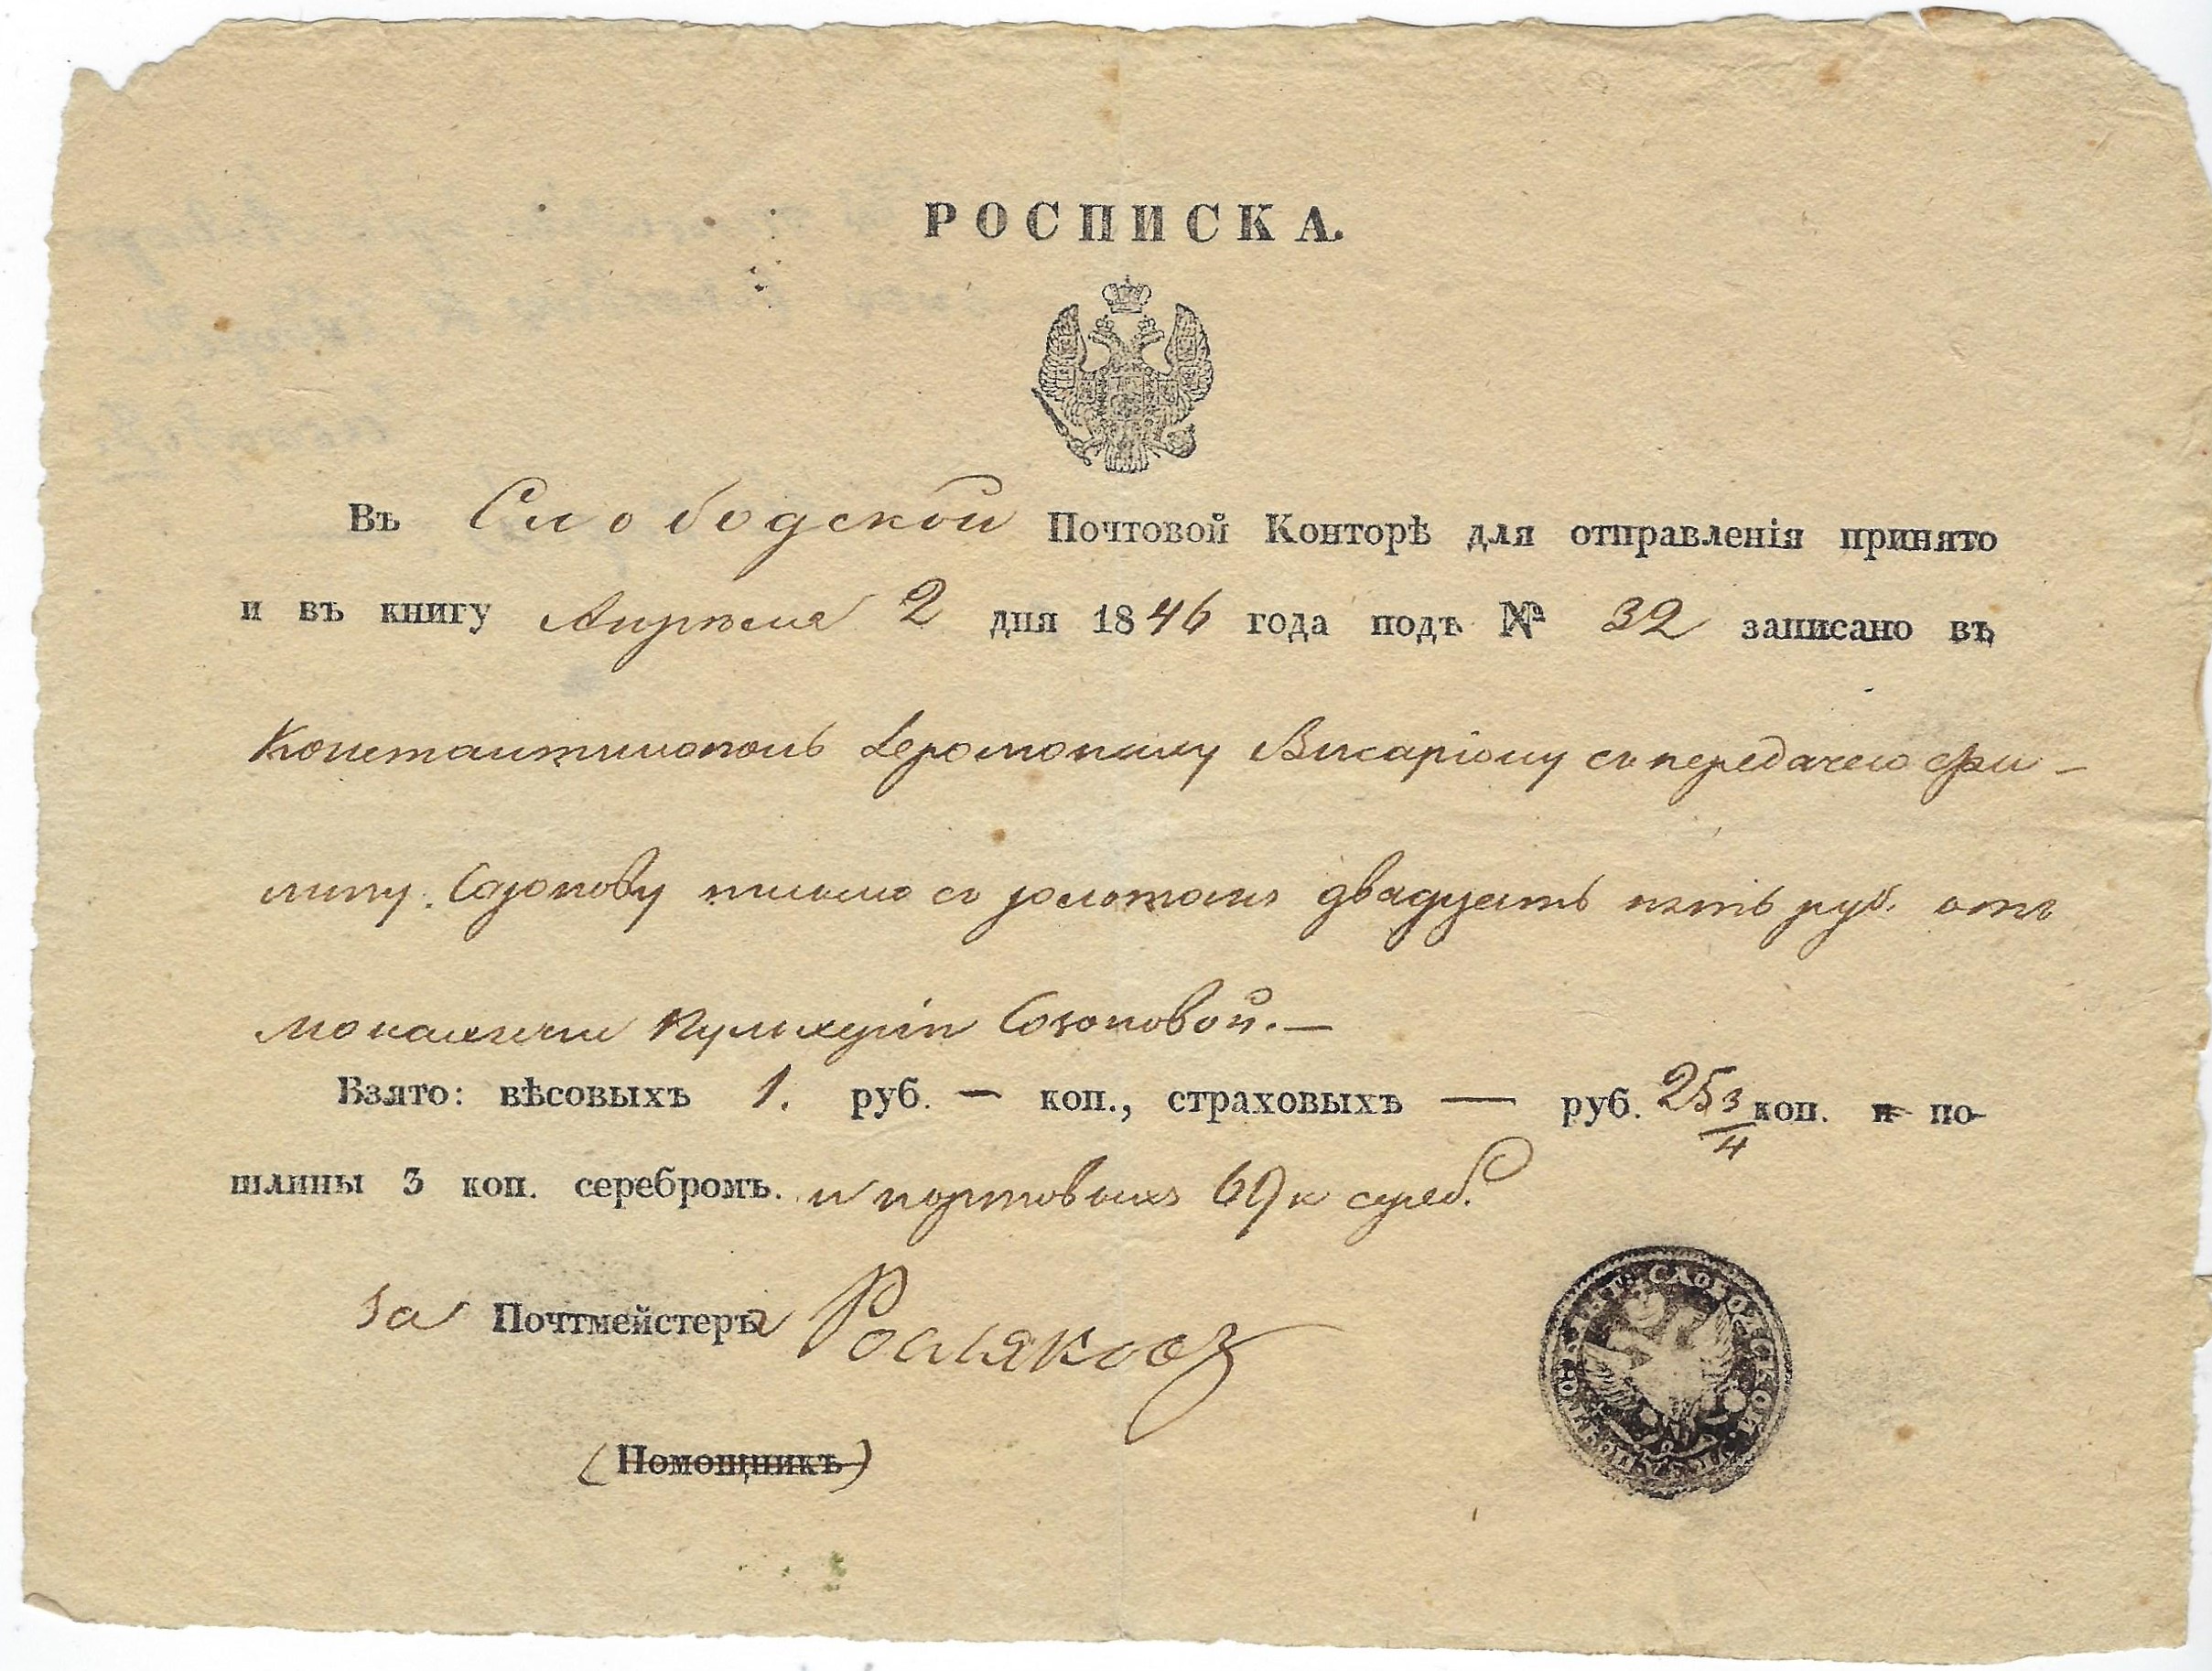 РОСПИСКА.
Въ Слободской Почтовой Конторѣ для отправленія принято
и въ книгу Апрѣля 2 дня 1846 года подъ № 32 записано въ
Константинополь Іеромонаху Висаріону съ передачею Фи-
липу Созонову письмо съ золотомъ двадцать пять руб. отъ
монахини Пульхеріи Созоновой.—
Взято: вѣсовыхъ 1. руб. — коп., страховыхъ — руб. 25 3/4 коп. и по-
шлины 3 коп. серебромъ. и портовыхъ 69 к сереб.
за Почтмейстера
(Помощникъ)
СЛОБОДСКОЙ